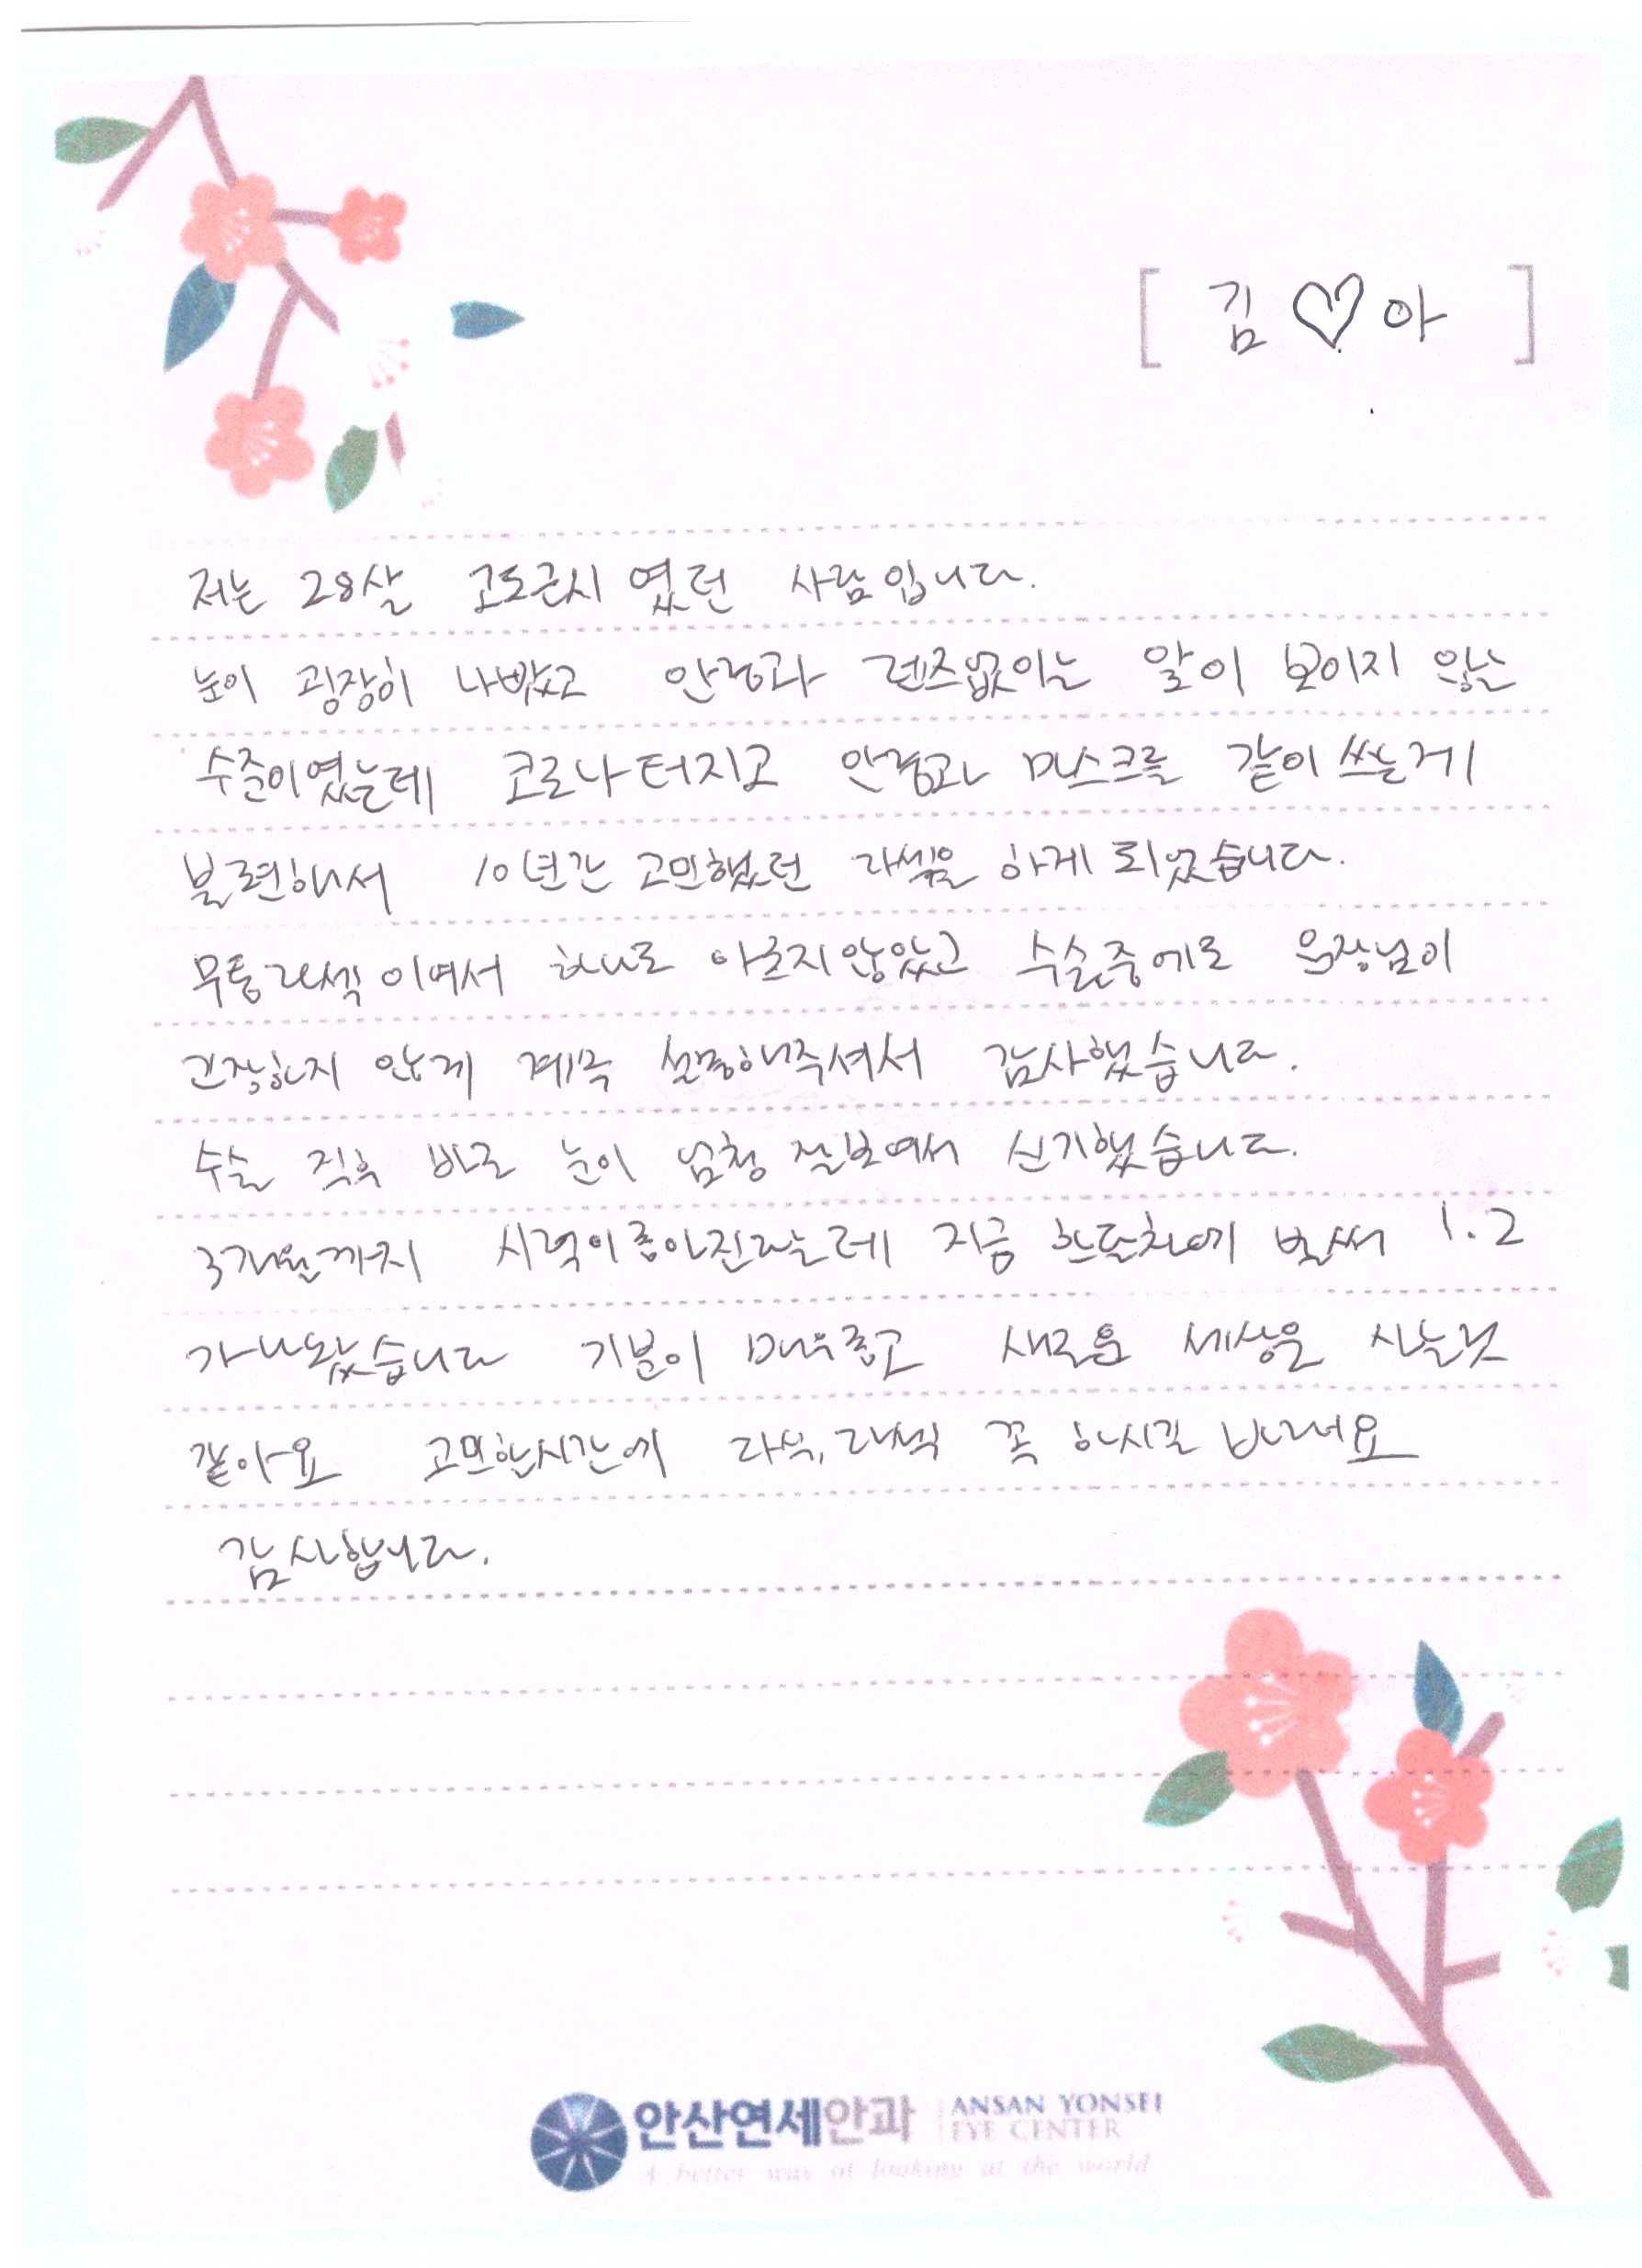 [ 김♡아 ]
저는 28살 고도근시 였던 사람입니다.
눈이 굉장히 나빴고 안경과 렌즈없이는 앞이 보이지 않는
수준이였는데 코로나 터지고 안경과 마스크를 같이 쓰는게
불편해서 10년간 고민했던 라섹을 하게 되었습니다.
무통라섹 이여서 하나도 아프지않았고 수술중에도 원장님이
긴장하지 않게 계속 설명해주셔서 감사했습니다.
수술 직후 바로 눈이 엄청 잘보여서 신기했습니다.
3개월까지 시력이좋아진다는데 지금 한달차에 벌써 1.2
가 나왔습니다 기분이 매우좋고 새로운 세상을 사는것
같아요 고민한시간에 라식, 라섹 꼭 하시길 바래요
감사합니다.
안산연세안과 ANSAN YONSEI
EYE CENTER
A better way of looking at the world